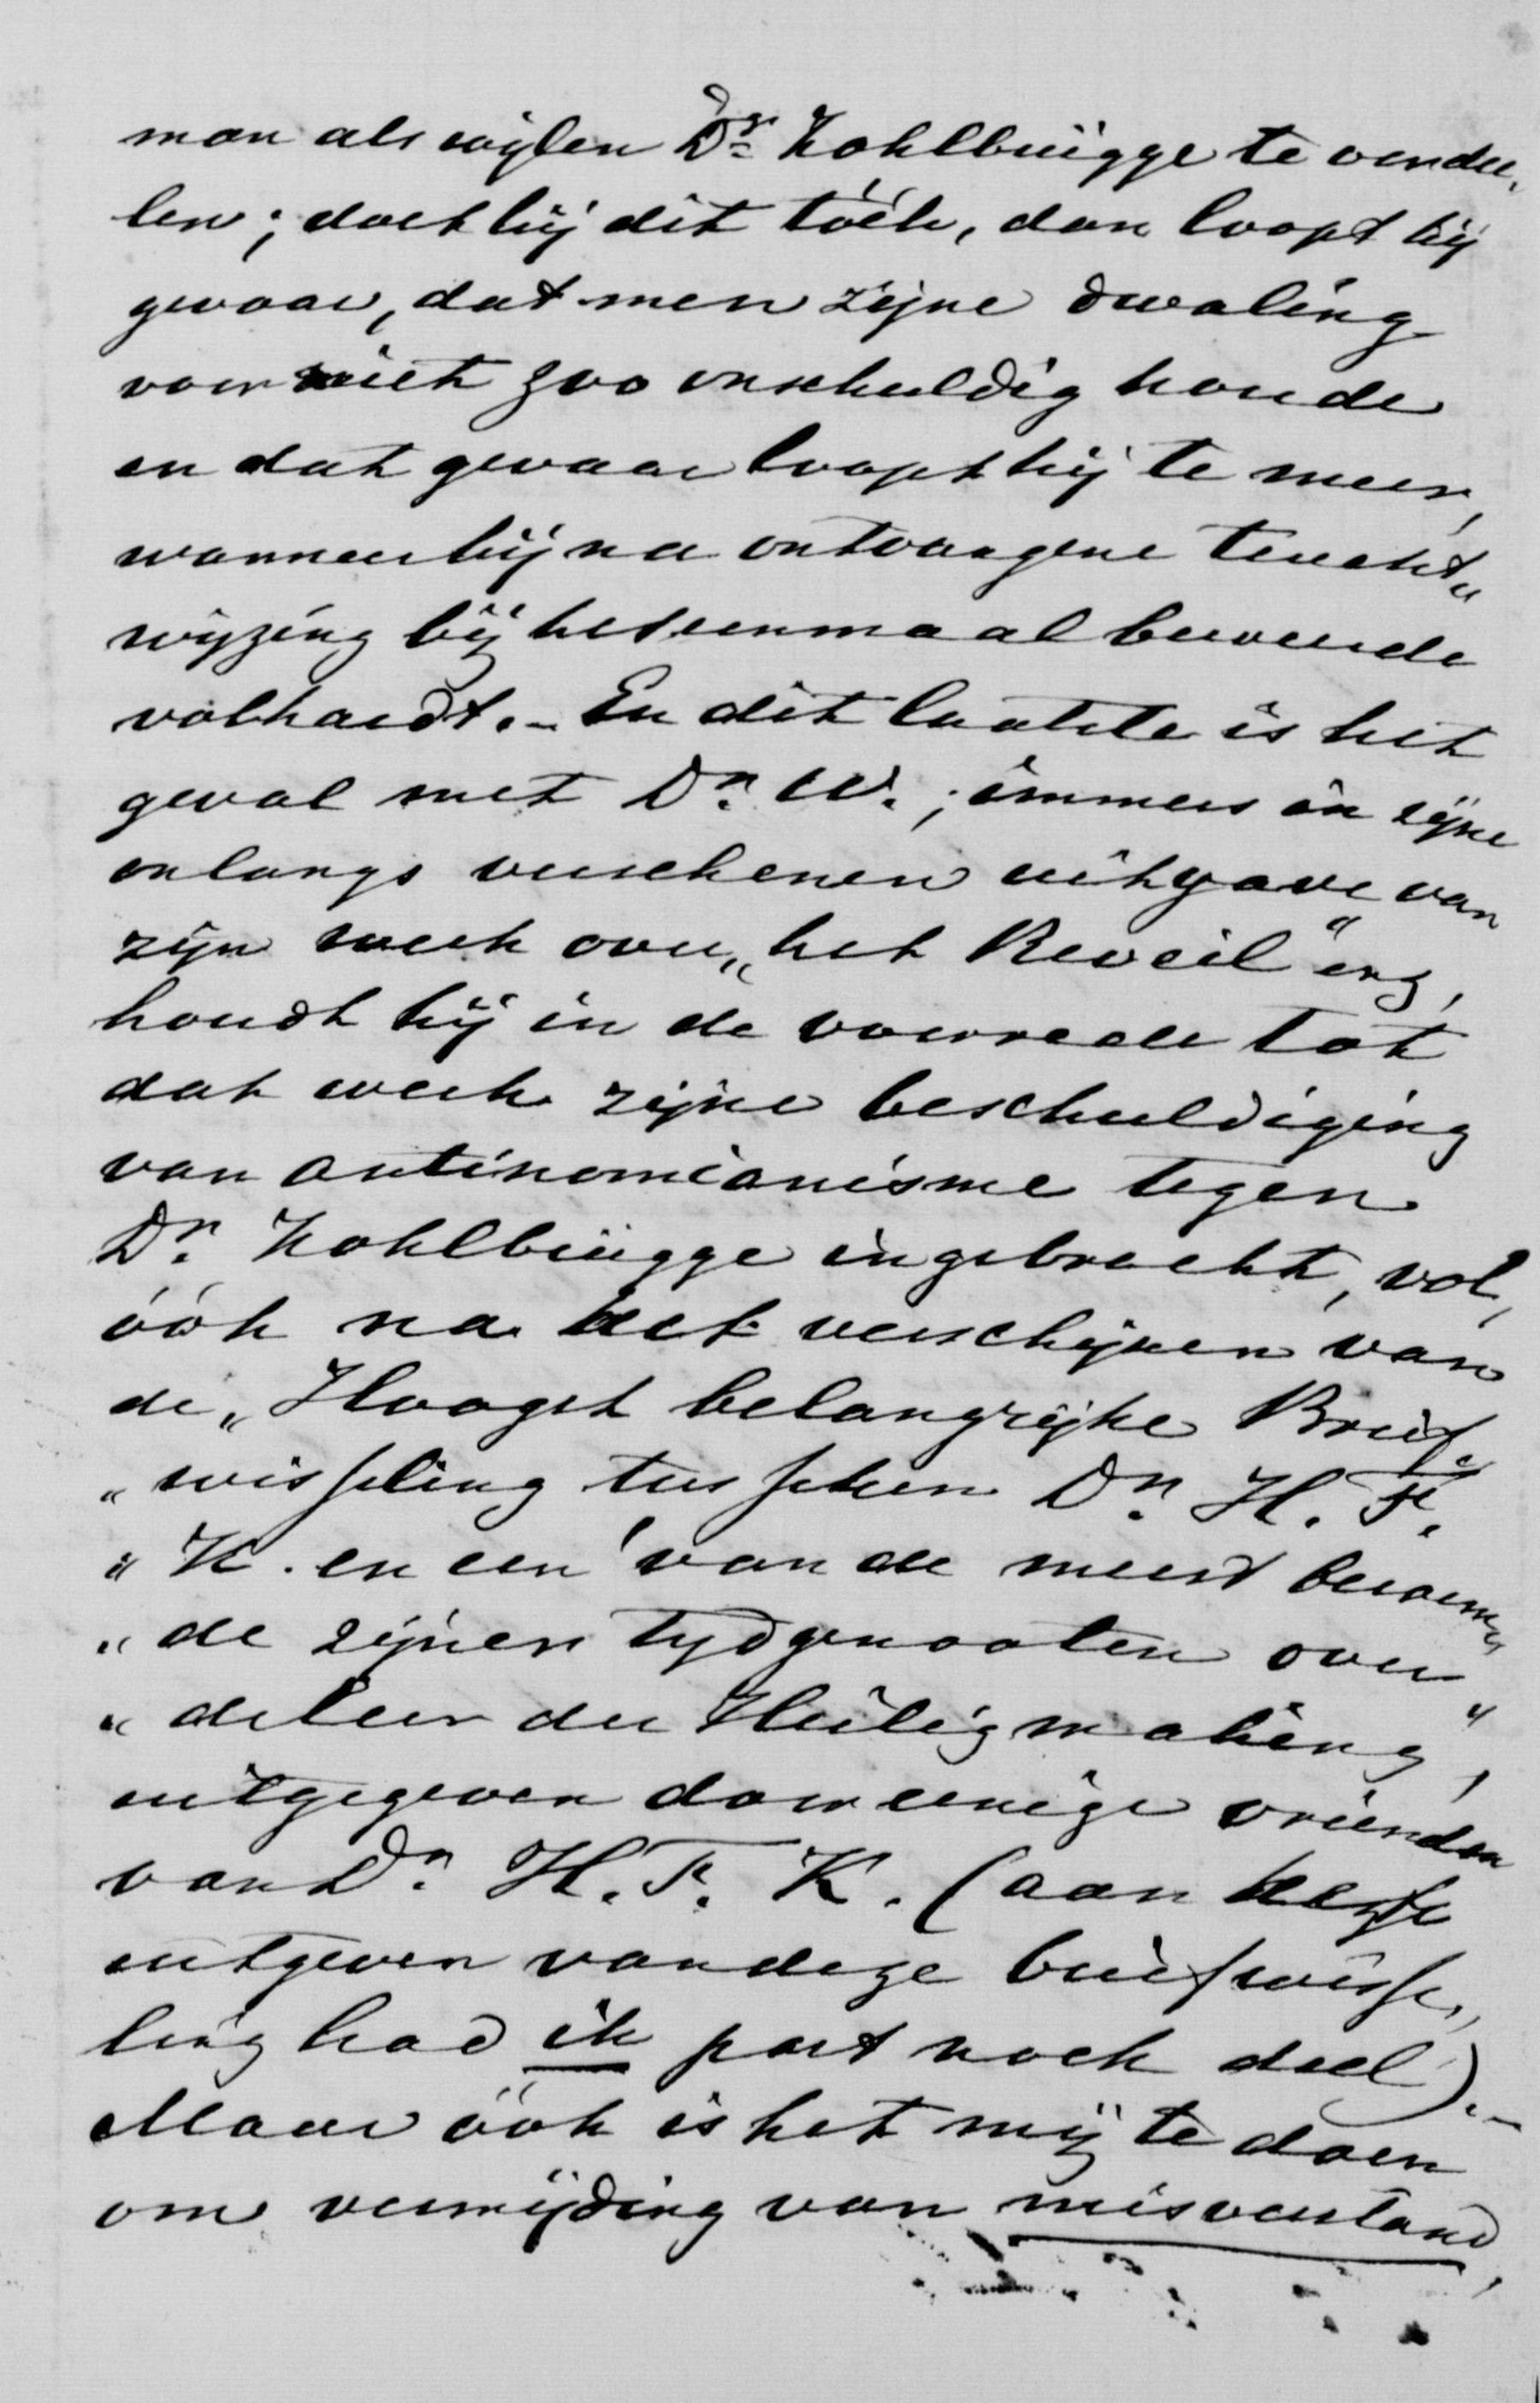 man als wijlen Dr. Kohlbrügge te oordee„
len; doet hij dit tóch, dan loopt hij
gevaar, dat men zijne dwaling
voor niet zoo onschuldig houde
en dat gevaar loopt hij te meer,
wanneer hij na ontvangene terecht„
wijzing bij het eenmaal beweerde
volhardt. – En dit laatste is het
geval met Dr. W.; immers in zijne
onlangs verschenen uitgave van
zijn werk over „het Reveil" ens,
houdt hij in de voorrede tot
dat werk zijne beschuldiging
van antinomianisme tegen
Dr. Kohlbrügge ingebracht, vol,
óók na het verschijnen van
de „Hoogst belangrijke Brief„
„wisseling tusschen Dr. H. F.
„K. en een van de meest beroem„
„de zijner tijdgenooten over
„de leer der Heiligmaking",
uitgegeven door eenige vrienden
van Dr. H. F. K. (aan het
uitgeven van deze briefwisse„
ling had ik part noch deel). –
Maar óók is het mij te doen
om vermijding van misverstand,